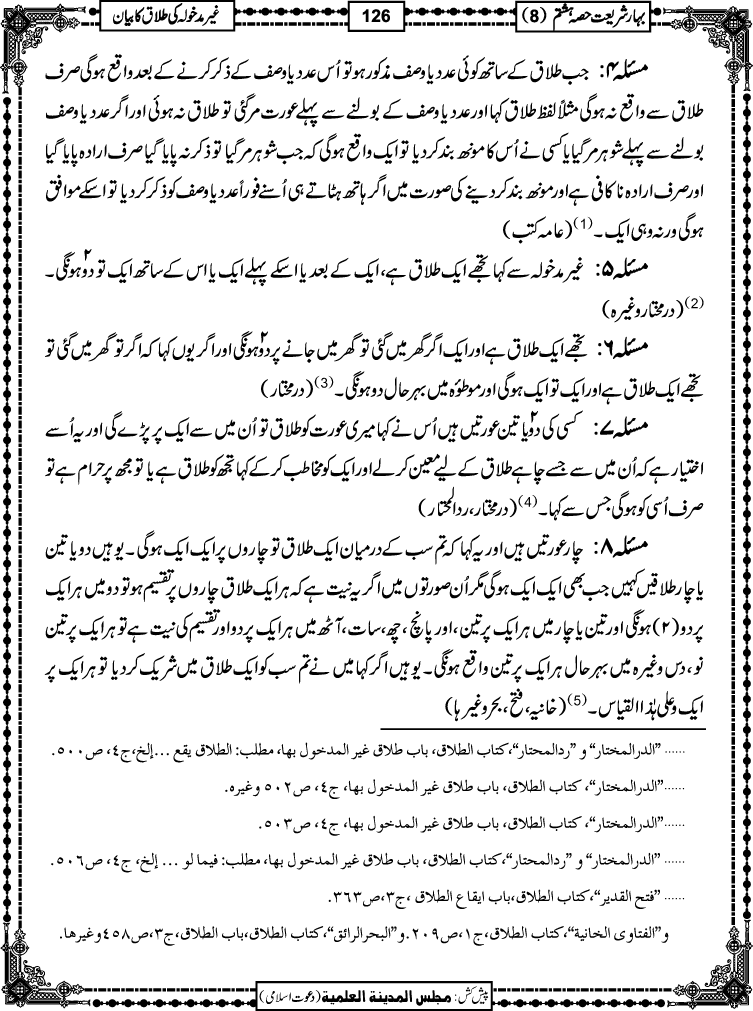 بہار شریعت حصہ ہشتم (8)
126
غیر مدخولہ کی طلاق کا بیان
مسئلہ ۴: جب طلاق کے ساتھ کوئی عدد یا وصف مذکور ہو تو اُس عدد یا وصف کے ذکر کرنے کے بعد واقع ہوگی صرف
طلاق سے واقع نہ ہوگی مثلاً لفظ طلاق کہا اور عدد یا وصف کے بولنے سے پہلے عورت مرگئی تو طلاق نہ ہوئی اور اگر عدد یا وصف
بولنے سے پہلے شوہر مرگیا یا کسی نے اُس کا مونھ بند کر دیا تو ایک واقع ہوگی کہ جب شوہر مرگیا تو ذکر نہ پایا گیا صرف ارادہ پایا گیا
اور صرف ارادہ ناکافی ہے اور مونھ بند کر دینے کی صورت میں اگر ہاتھ ہٹاتے ہی اُسنے فوراً عدد یا وصف کو ذکر کر دیا تو اسکے موافق
ہوگی ورنہ وہی ایک۔(1) (عامہ کتب)
مسئلہ ۵: غیر مدخولہ سے کہا تجھے ایک طلاق ہے، ایک کے بعد یا اسکے پہلے ایک یا اس کے ساتھ ایک تو دو۲ ہونگی۔
(2) (درمختار وغیرہ)
مسئلہ ۶: تجھے ایک طلاق ہے اور ایک اگر گھر میں گئی تو گھر میں جانے پر دو۲ ہونگی اور اگر یوں کہا کہ اگر تو گھر میں گئی تو
تجھے ایک طلاق ہے اور ایک تو ایک ہوگی اور موطؤہ میں بہر حال دو ہونگی۔(3) (درمختار)
مسئلہ ۷: کسی کی دو۲ یا تین عورتیں ہیں اُس نے کہا میری عورت کو طلاق تو اُن میں سے ایک پر پڑے گی اور یہ اُسے
اختیار ہے کہ اُن میں سے جسے چاہے طلاق کے لیے معین کر لے اور ایک کو مخاطب کر کے کہا تجھ کو طلاق ہے یا تو مجھ پر حرام ہے تو
صرف اُسی کو ہوگی جس سے کہا۔(4) (درمختار، ردالمحتار)
مسئلہ ۸: چار عورتیں ہیں اور یہ کہا کہ تم سب کے درمیان ایک طلاق تو چاروں پر ایک ایک ہوگی۔ یوہیں دو یا تین
یا چار طلاقیں کہیں جب بھی ایک ایک ہوگی مگر اُن صورتوں میں اگر یہ نیت ہے کہ ہر ایک طلاق چاروں پر تقسیم ہو تو دو میں ہر ایک
پر دو (۲) ہونگی اور تین یا چار میں ہر ایک پر تین، اور پانچ، چھ، سات، آٹھ میں ہر ایک پر دو اور تقسیم کی نیت ہے تو ہر ایک پر تین
نو، دس وغیرہ میں بہر حال ہر ایک پر تین واقع ہونگی۔ یوہیں اگر کہا میں نے تم سب کو ایک طلاق میں شریک کر دیا تو ہر ایک پر
ایک وعلی ہٰذا القیاس۔(5) (خانیہ، فتح، بحر وغیرہا)
...... ”الدرالمختار“ و ”ردالمحتار“،کتاب الطلاق، باب طلاق غیر المدخول بھا، مطلب: الطلاق یقع ...إلخ،ج٤، ص٥٠٠.
......”الدرالمختار“، کتاب الطلاق، باب طلاق غیر المدخول بھا، ج٤، ص٥٠٢ وغیرہ.
......”الدرالمختار“، کتاب الطلاق، باب طلاق غیر المدخول بھا، ج٤، ص٥٠٣.
...... ”الدرالمختار“ و ”ردالمحتار“،کتاب الطلاق، باب طلاق غیر المدخول بھا، مطلب: فیما لو ... إلخ، ج٤، ص٥٠٦.
...... ”فتح القدیر“، کتاب الطلاق،باب ایقاع الطلاق ،ج٣،ص٣٦٣.
و”الفتاوی الخانیة“، کتاب الطلاق،ج١،ص٢٠٩.و”البحرالرائق“،کتاب الطلاق،باب الطلاق،ج٣،ص٤٥٨وغیرھا.
پیش کش: مجلس المدینۃ العلمیۃ (دعوت اسلامی)